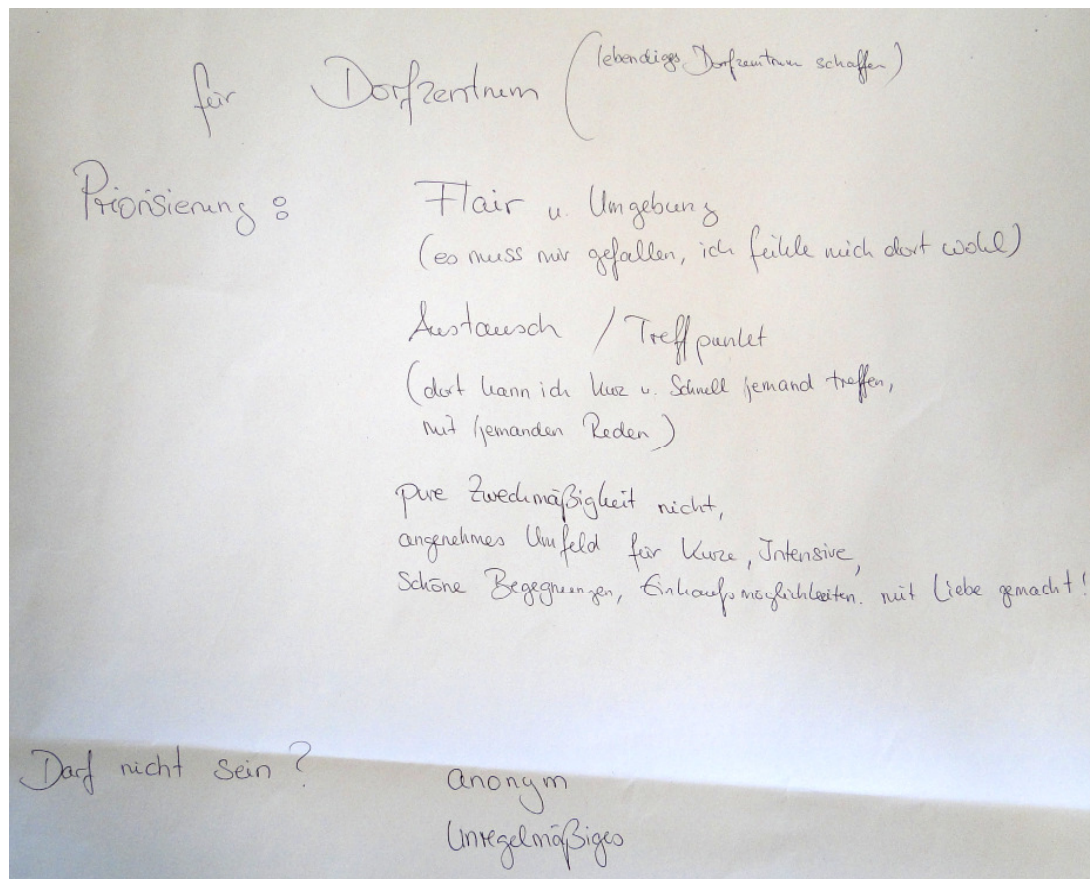 für Dorfzentrum (lebendiges Dorfzentrum schaffen)
Priorisierung: Flair u. Umgebung
(es muss mir gefallen, ich fühle mich dort wohl)
Austausch / Treffpunkt
(dort kann ich kurz u. Schnell jemand treffen,
mit jemanden Reden)
pure Zweckmäßigkeit nicht,
angenehmes Umfeld für Kurze, Intensive,
Schöne Begegnungen, Einkaufsmöglichkeiten. mit Liebe gemacht!
Darf nicht sein? anonym
Unregelmäßiges